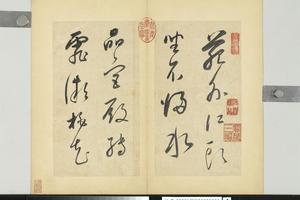 苑外江頭
坐不歸水
晶宮殿轉
霏微桃花